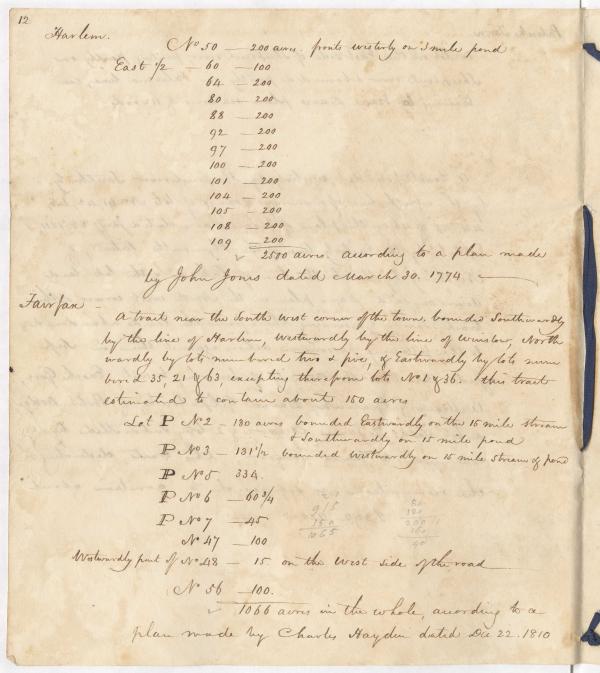 12
Harlem.
No 50 — 200 acres. fronts westerly on 3 mile pond
East 1/2 — 60 — 100
64 — 200
80 — 200
88 — 200
92 — 200
97 — 200
100 — 200
101 — 200
104 — 200
105 — 200
108 — 200
109 — 200
2500 acres. according to a plan made
by John Jones dated March 30. 1774 —
Fairfax —
A tract near the South West corner of the town, bounded Southwardly
by the line of Harlem, Westwardly by the line of Winslow, North
wardly by lots numbered two & five, & Eastwardly by lots num
bered 35, 21 & 63, excepting therefrom lots No 1 & 36. this tract
estimated to contain about 150 acres
Lot P No 2 — 130 acres bounded Eastwardly on the 15 mile stream
& Southwardly on 15 mile pond
P No 3 — 131 1/2 bounded Westwardly on 15 mile stream & pond
P No 5 334.
P No 6 — 60 3/4
P No 7 — 45
No 47 — 100
Westwardly part of No 48 — 15 on the West side of the road
No 56 — 100.
915
150
1065
1066 acres in the whole, according to a
plan made by Charles Hayden dated Dec 22. 1810